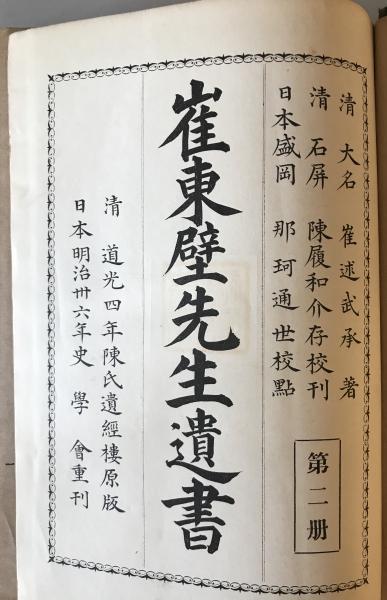 清 大名 崔述武承 著
清 石屏 陳履和介存校刊
日本盛岡 那珂通世校點
第二册
崔東壁先生遺書
清 道光四年陳氏遺經樓原版
日本明治卅六年史學會重刊